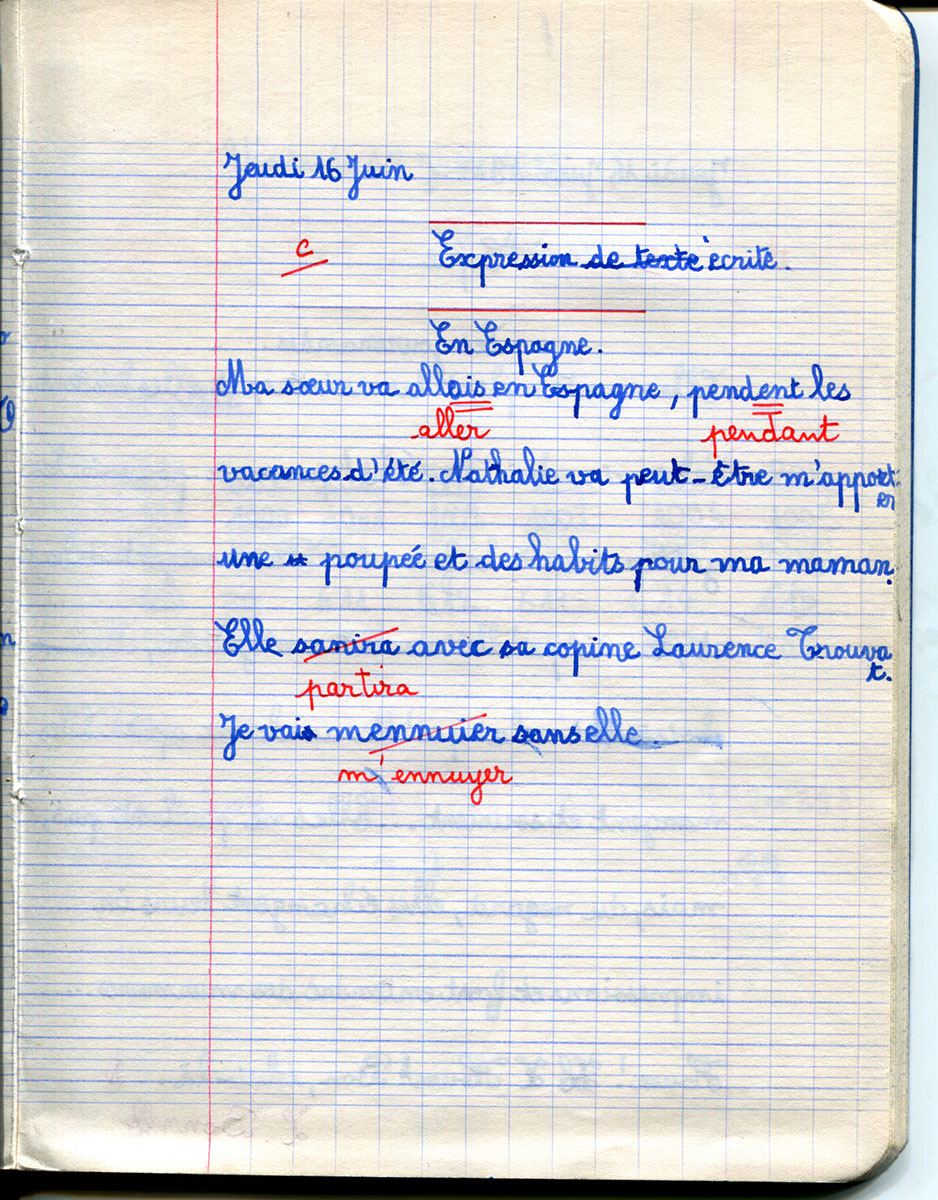 Jeudi 16 Juin
C
Expression de texte écrite.
En Espagne.
Ma sœur va allais en Espagne, pendent les
aller pendant
vacances d'été. Nathalie va peut-être m'apport
er
une poupée et des habits pour ma maman.
Elle sanira avec sa copine Laurence Trouva
t.
partira
Je vais mennuier sans elle.
m'ennuyer